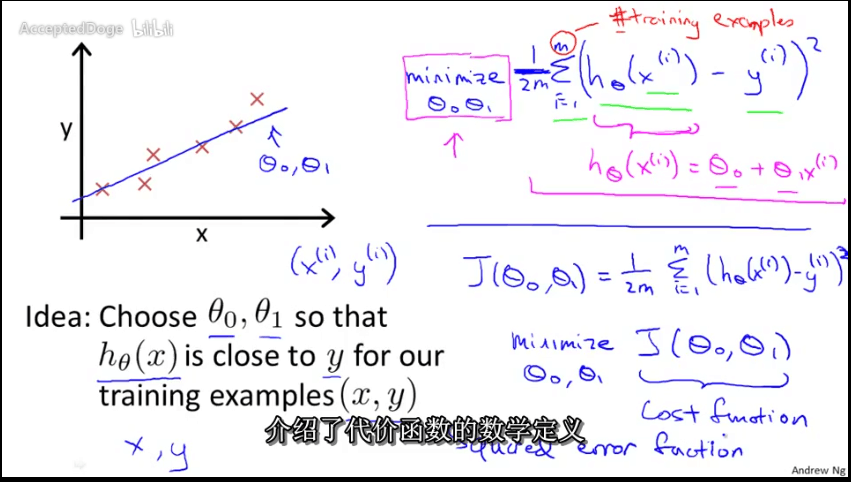 AcceptedDoge bilibili
#training examples
minimize θ₀θ₁ 1/2m Σᵢ₌₁ᵐ (hθ(x⁽ⁱ⁾) - y⁽ⁱ⁾)²
y
θ₀,θ₁
x
hθ(x⁽ⁱ⁾) = θ₀ + θ₁x⁽ⁱ⁾
(x⁽ⁱ⁾, y⁽ⁱ⁾)
J(θ₀,θ₁) = 1/2m Σᵢ₌₁ᵐ (hθ(x⁽ⁱ⁾)-y⁽ⁱ⁾)²
Idea: Choose θ₀, θ₁ so that
hθ(x) is close to y for our
training examples (x, y)
x, y
minimize J(θ₀,θ₁)
θ₀,θ₁
Cost function
squared error function
介绍了代价函数的数学定义
Andrew Ng